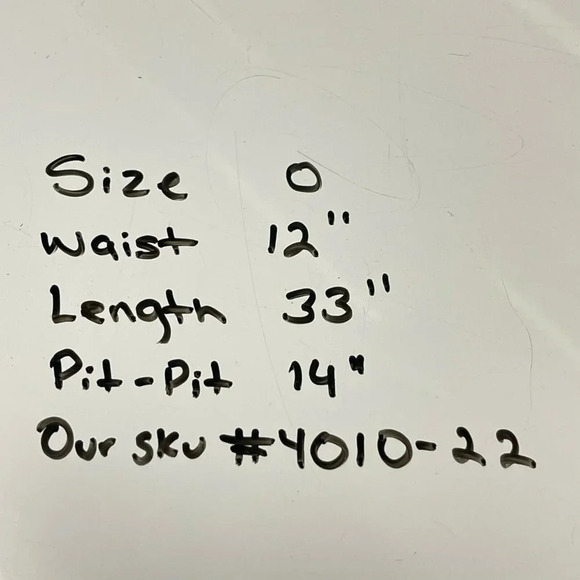 Size 0
Waist 12"
Length 33"
Pit-Pit 14"
Our sku #4010-22